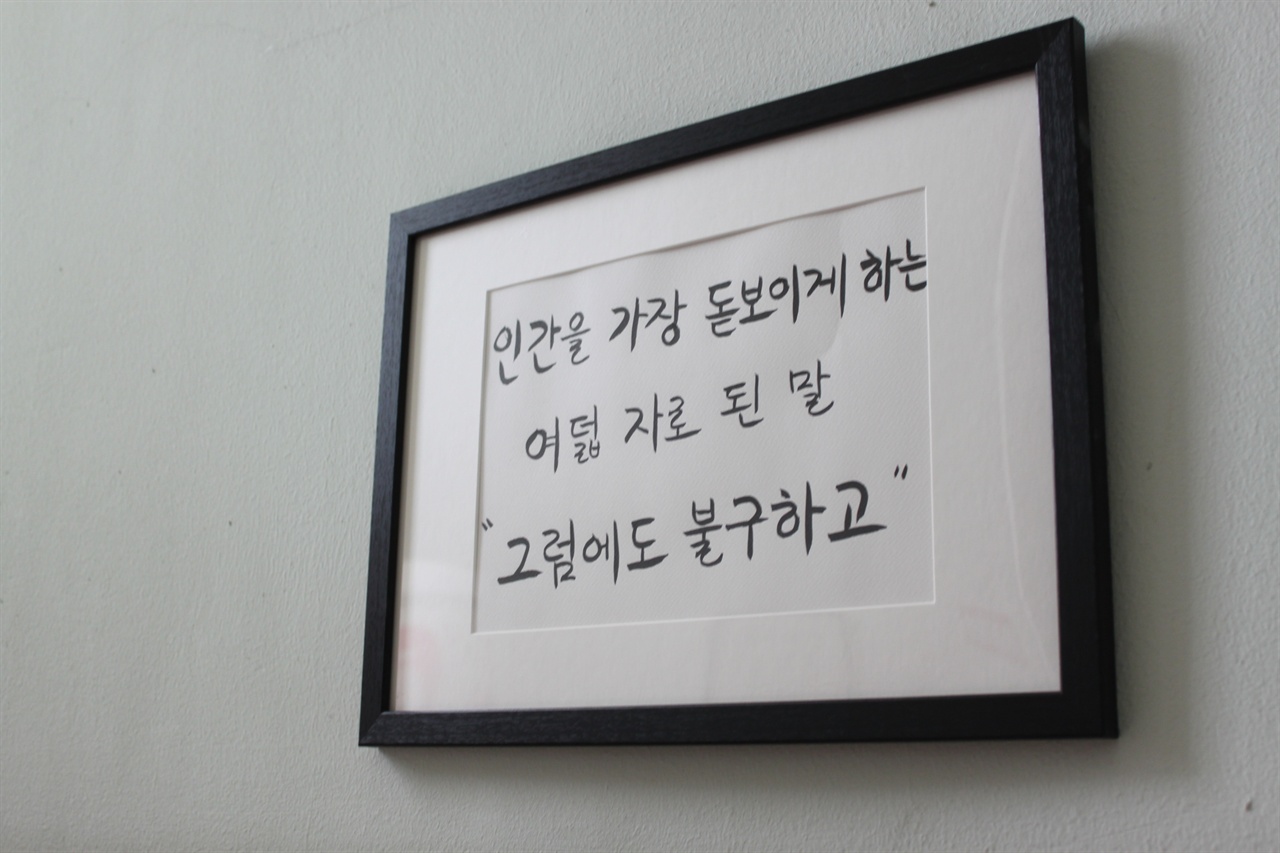 인간을 가장 돋보이게 하는
여덟 자로 된 말
"그럼에도 불구하고"